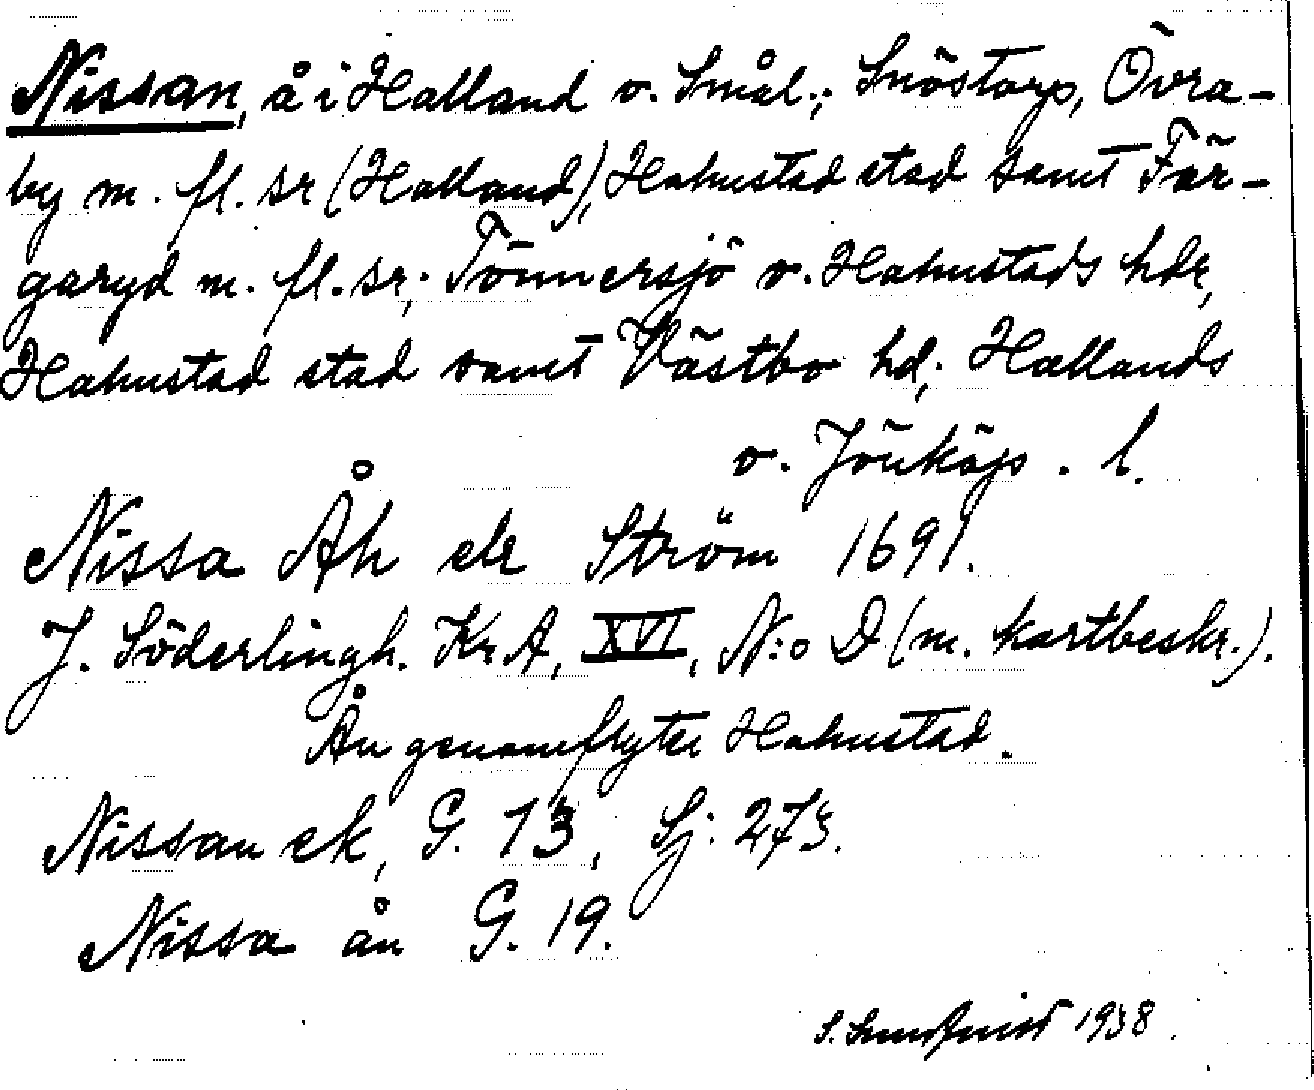 Nissan, å i Halland o. Smål.; Snöstorp, Övra-
by m. fl. sr (Halland), Halmstad stad samt Fär-
garyd m. fl. sr; Tönnersjö o. Halmstads hdr,
Halmstad stad samt Västbo hd; Hallands
o. Jönköp. l.
Nissa Åh elr Ström 1691.
J. Söderlingh. Kr. A, XVI, N:o D (m. kartbeskr.).
Ån genomflyter Halmstad.
Nissan ek, G. 13, Sj: 273.
Nissa ån G. 19.
S. Sundqvist 1938.